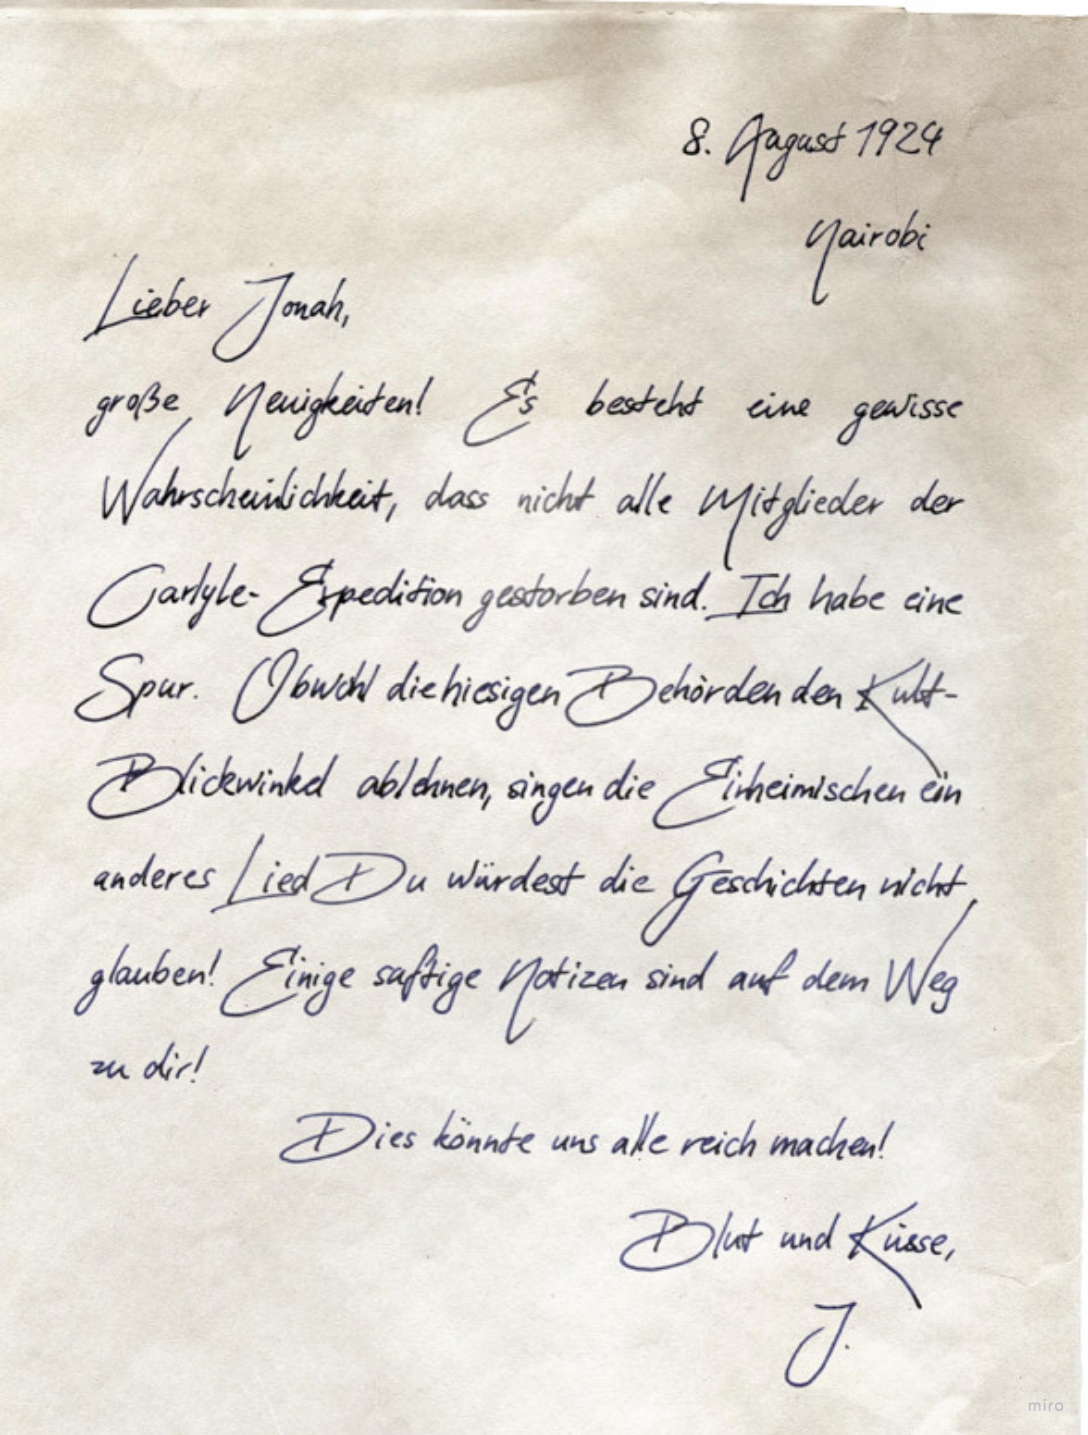 8. August 1924
Nairobi
Lieber Jonah,
große Neuigkeiten! Es besteht eine gewisse
Wahrscheinlichkeit, dass nicht alle Mitglieder der
Carlyle-Expedition gestorben sind. Ich habe eine
Spur. Obwohl die hiesigen Behörden den Kult-
Blickwinkel ablehnen, singen die Einheimischen ein
anderes Lied Du würdest die Geschichten nicht
glauben! Einige saftige Notizen sind auf dem Weg
zu dir!
Dies könnte uns alle reich machen!
Blut und Küsse,
J.
miro